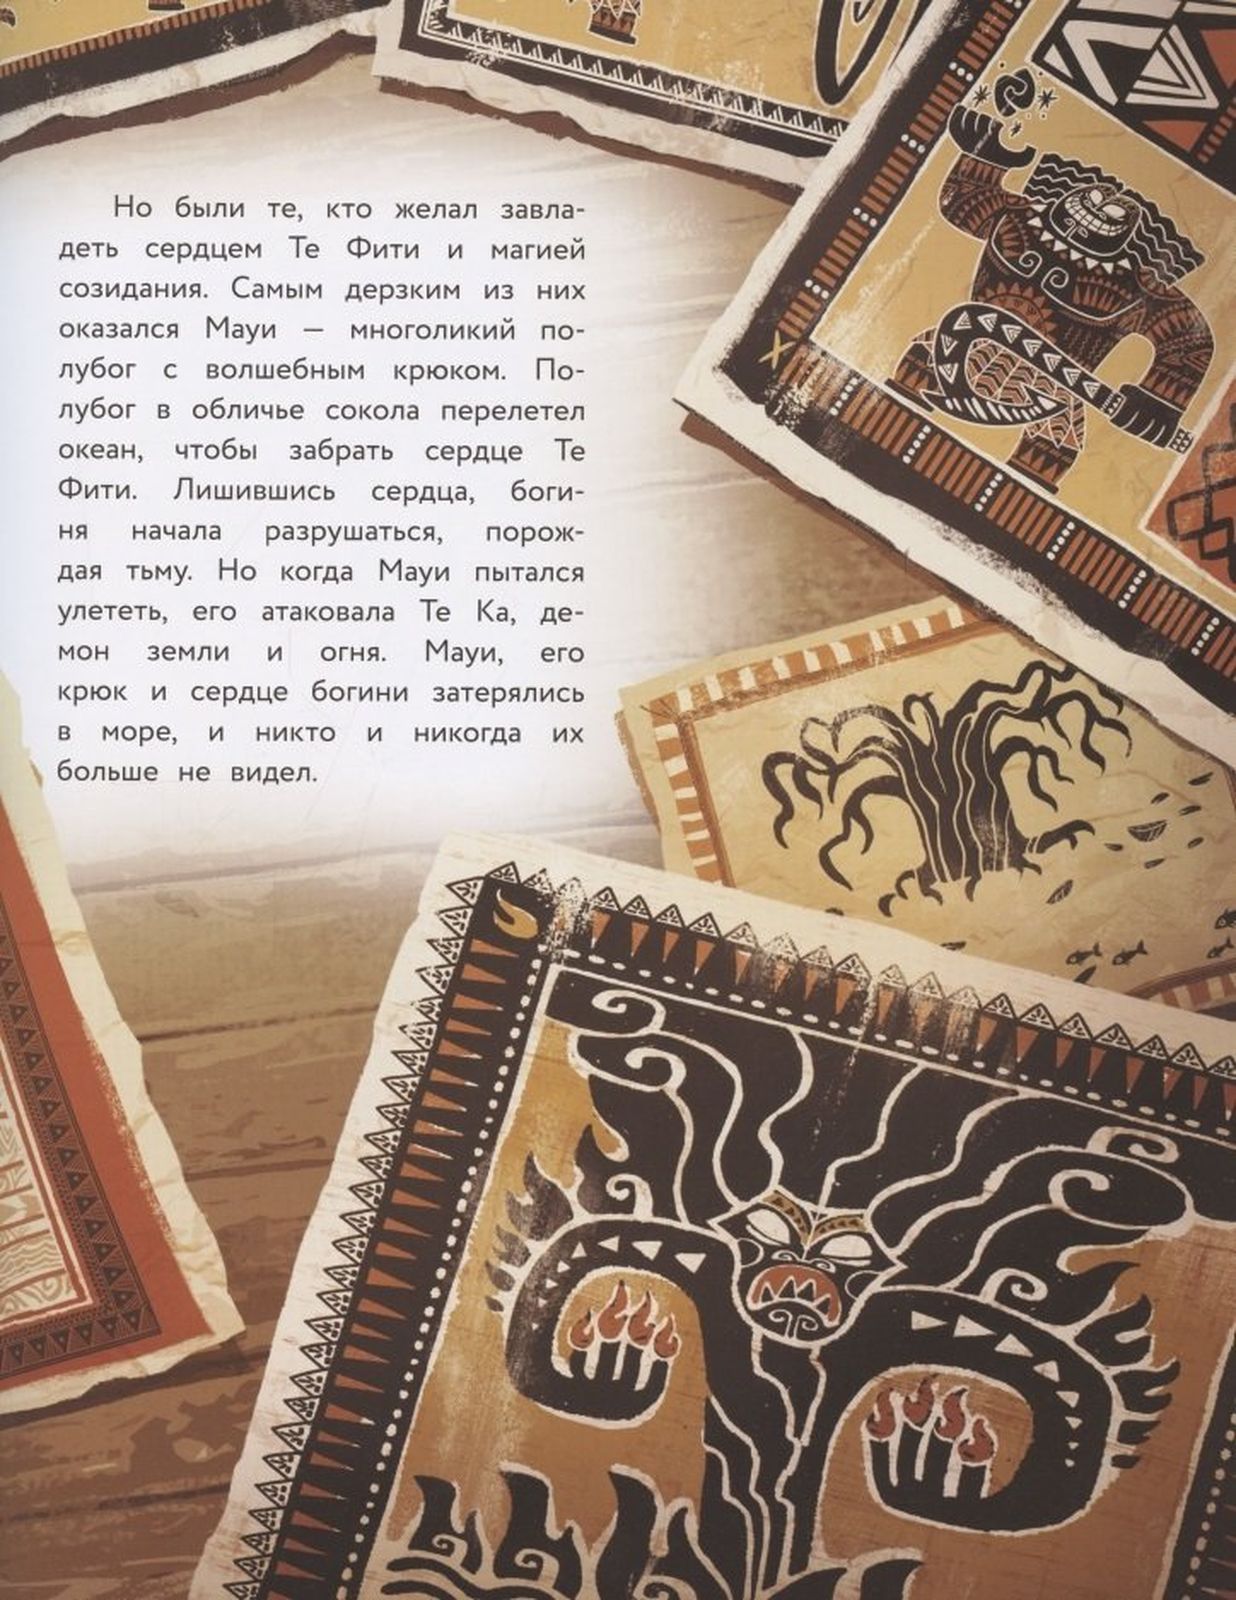 Но были те, кто желал завла-
деть сердцем Те Фити и магией
созидания. Самым дерзким из них
оказался Мауи — многоликий по-
лубог с волшебным крюком. По-
лубог в обличье сокола перелетел
океан, чтобы забрать сердце Те
Фити. Лишившись сердца, боги-
ня начала разрушаться, порож-
дая тьму. Но когда Мауи пытался
улететь, его атаковала Те Ка, де-
мон земли и огня. Мауи, его
крюк и сердце богини затерялись
в море, и никто и никогда их
больше не видел.